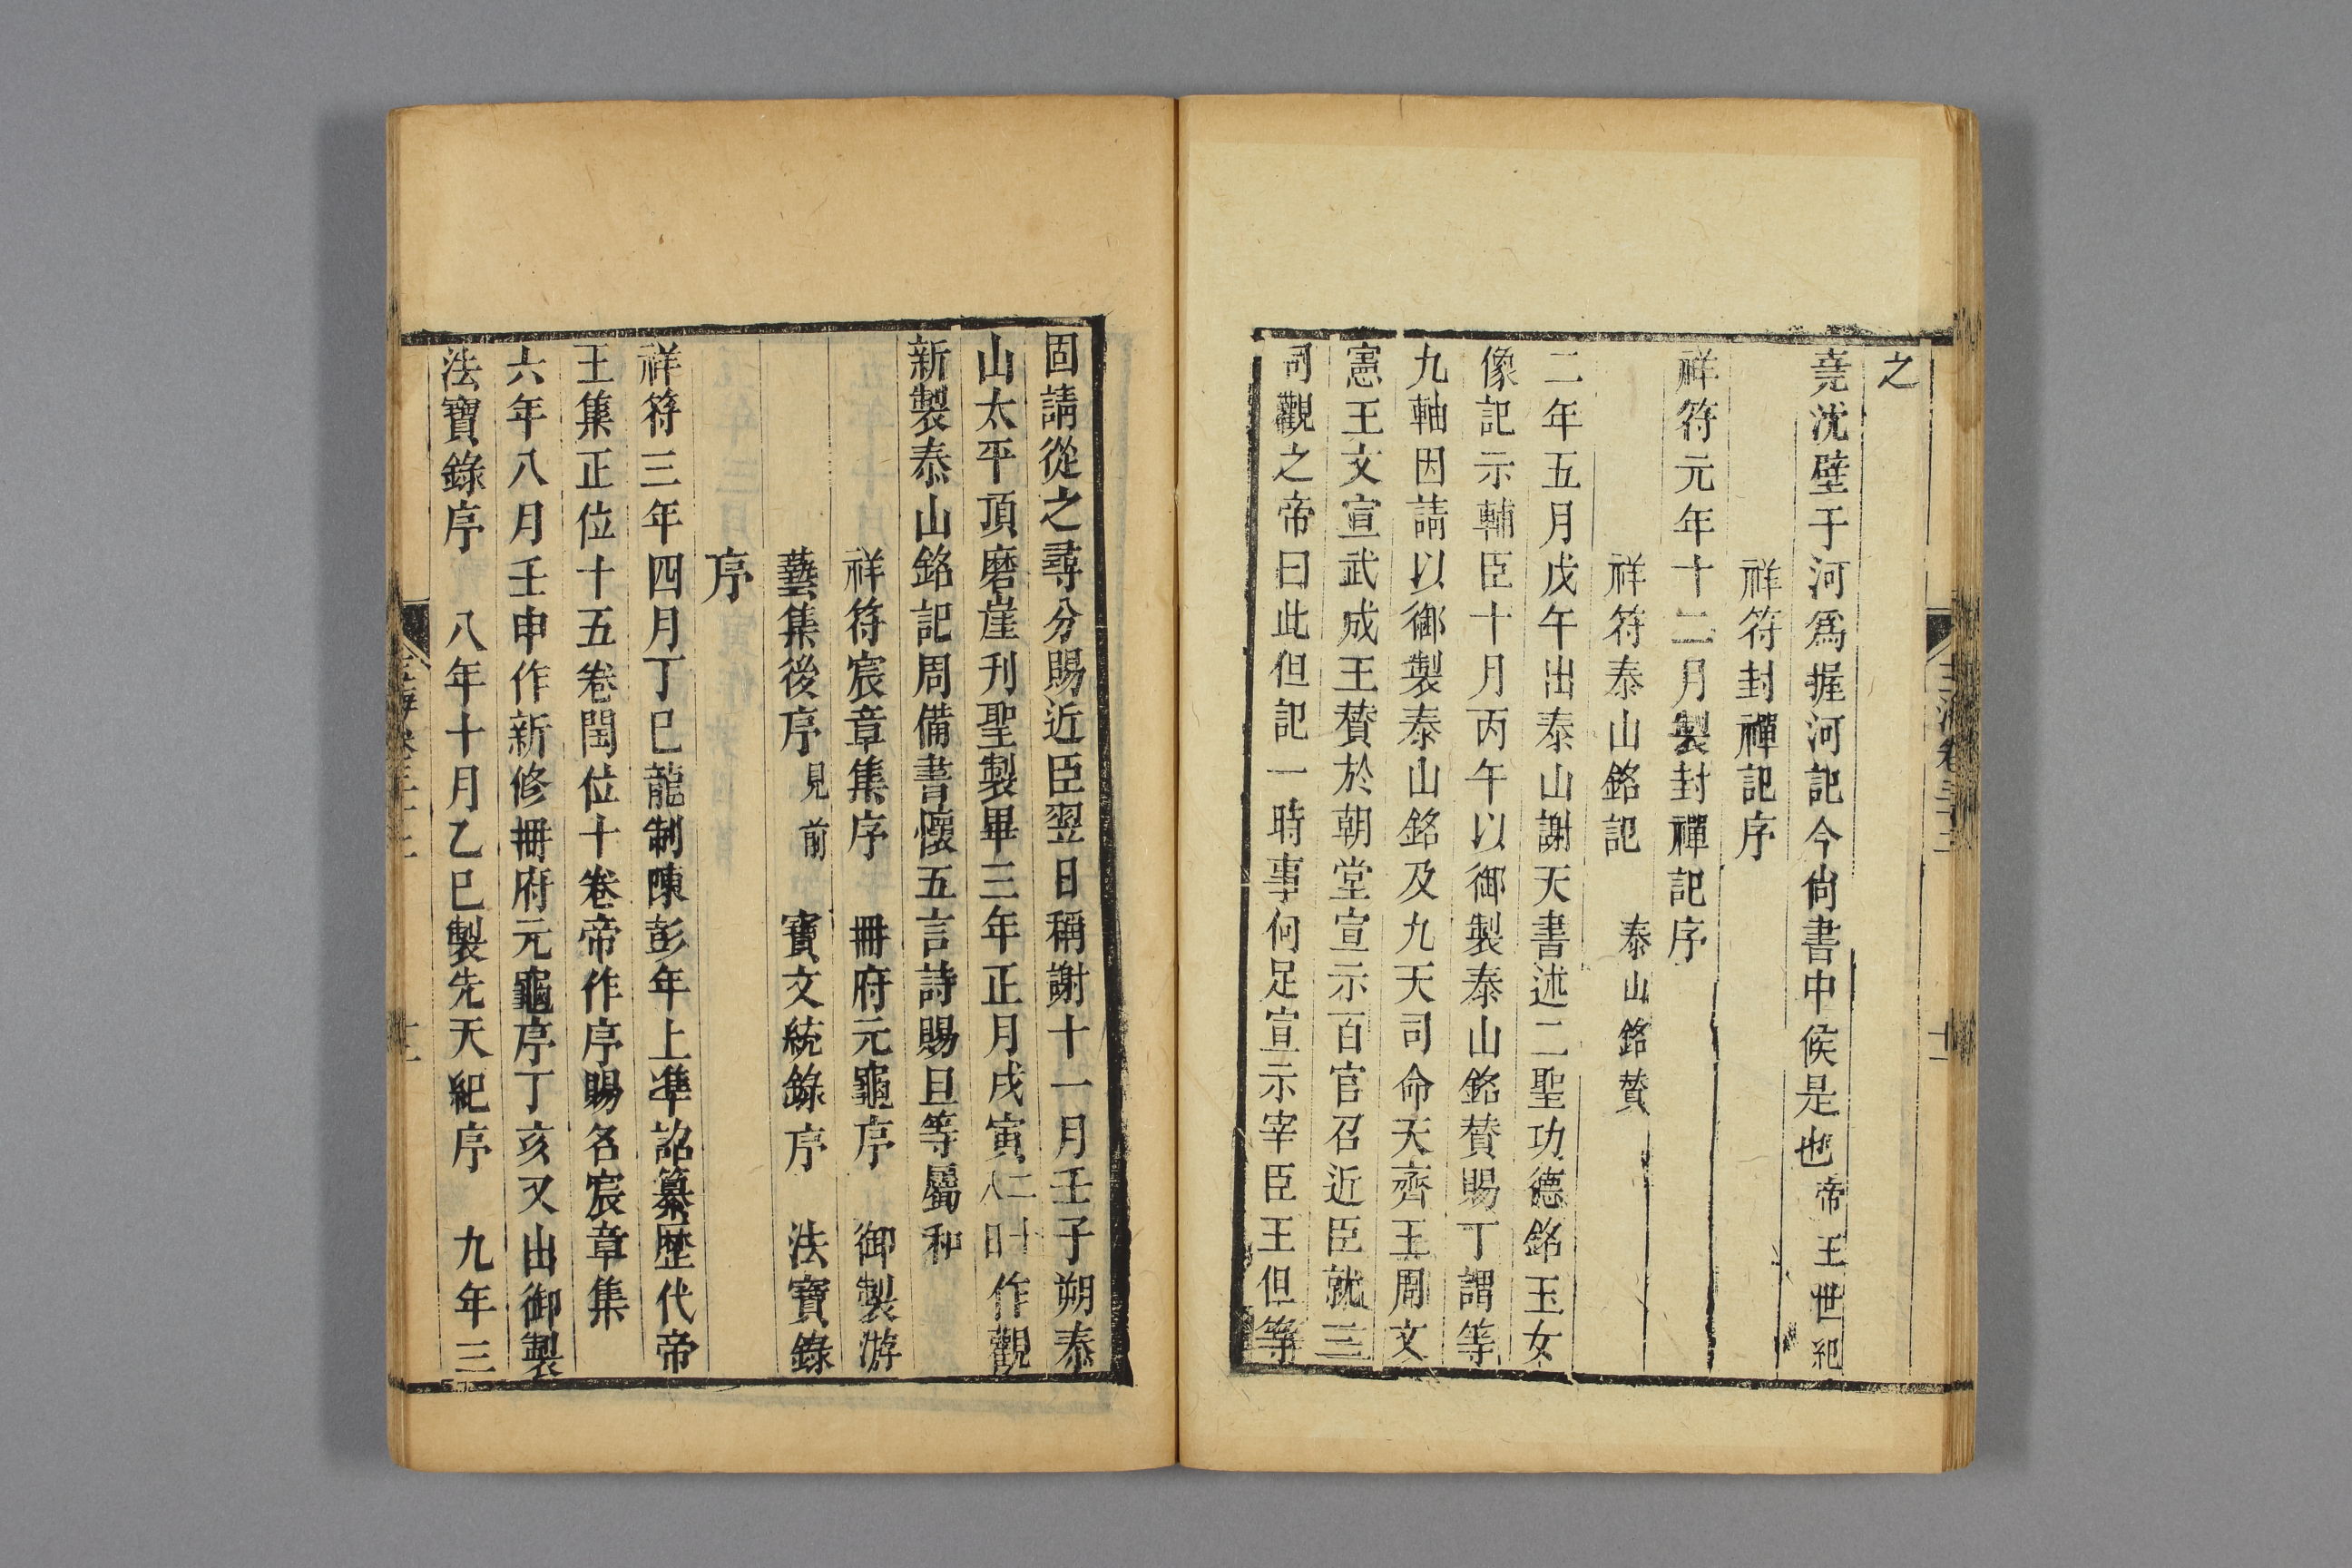 之
堯沈璧于河爲握河記今尙書中候是也帝王世紀
祥符封禪記序
祥符元年十二月製封禪記序
祥符泰山銘記　泰山銘贊
二年五月戊午出泰山謝天書述二聖功德銘玉女
像記示輔臣十月丙午以御製泰山銘贊賜丁謂等
九軸因請以御製泰山銘及九天司命天齊王周文
憲王文宣武成王贊於朝堂宣示百官召近臣就三
司觀之帝曰此但記一時事何足宣示宰臣王但等
固請從之尋分賜近臣翌日稱謝十一月壬子朔泰
山太平頂磨崖刊聖製畢三年正月戌寅二十八日作觀
新製泰山銘記周備書懷五言詩賜旦等屬和
祥符宸章集序　冊府元龜序　御製游
藝集後序見前　寶文統錄序　法寶錄
序
祥符三年四月丁巳龍制陳彭年上準詔纂歷代帝
王集正位十五卷閏位十卷帝作序賜名宸章集
六年八月壬申作新修冊府元龜序丁亥又出御製
法寶錄序　八年十月乙巳製先天紀序　九年三